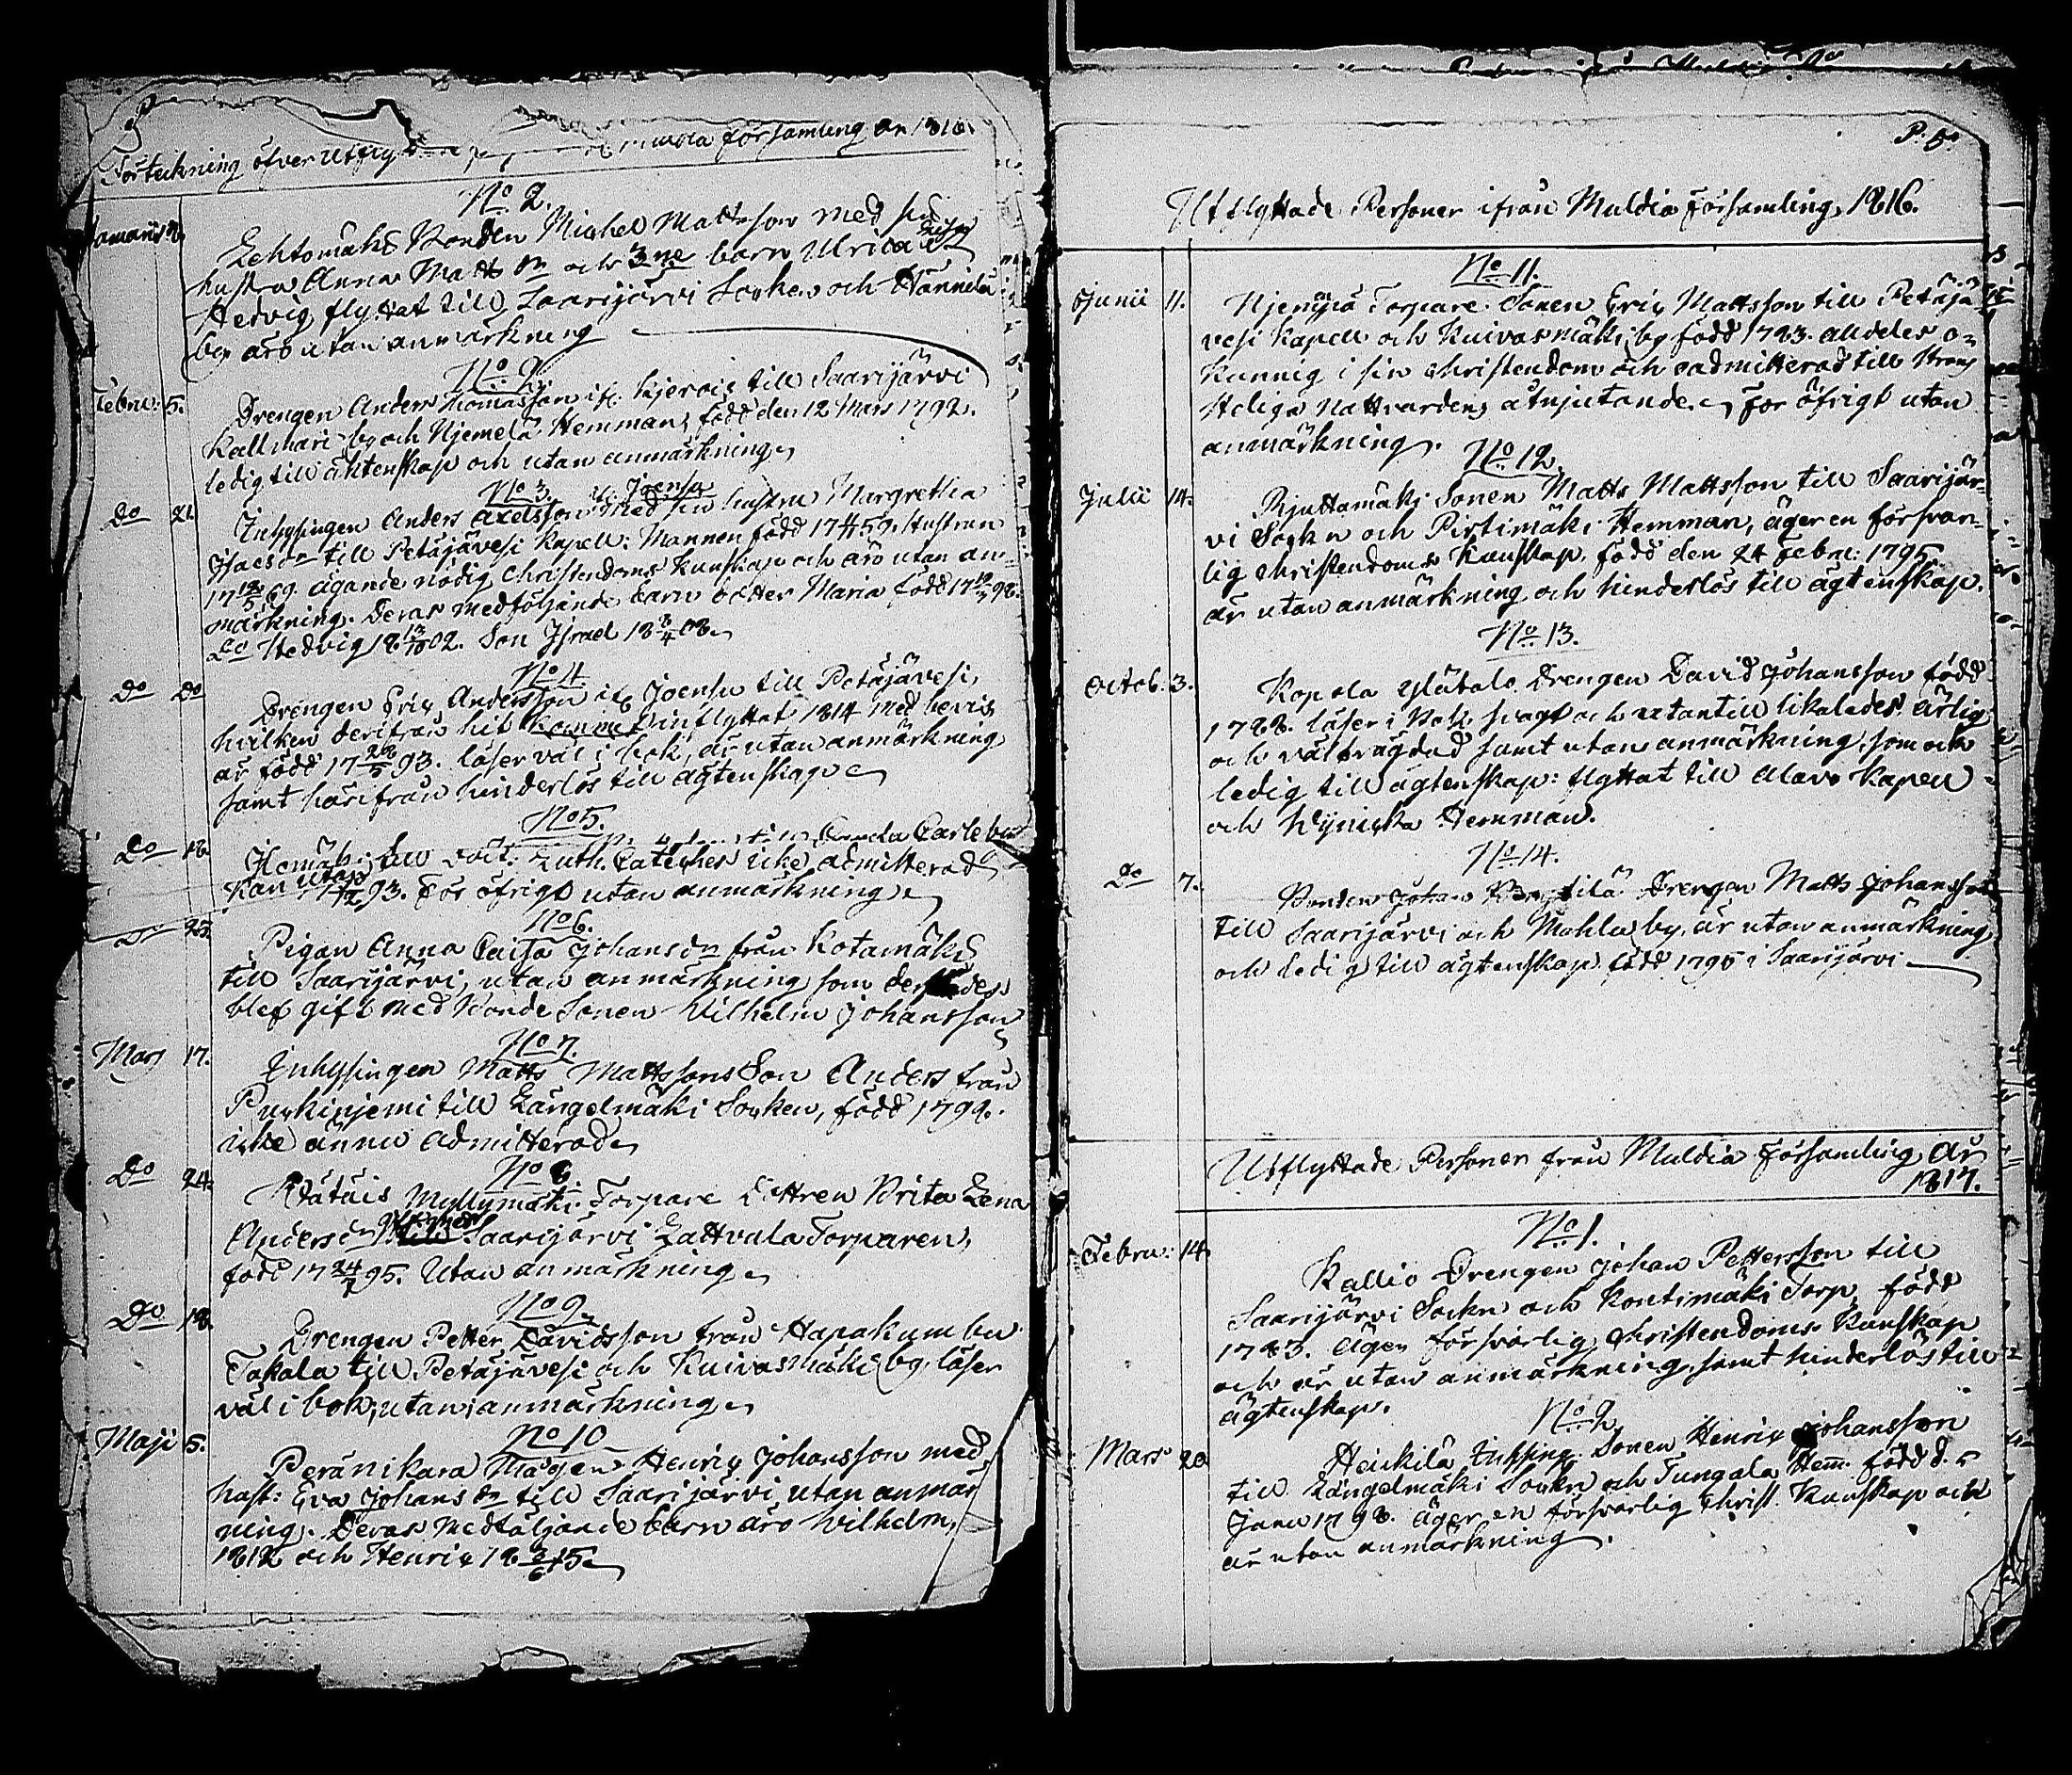 Förteckning öfver Utfly församling år 1816.
No 2.
Januarii
Lehtomäki Bonden Michel Mattsson med sin
hustru Anna Matts dr och 3ne barn Ulrica
Hedvig flyttat till Saarijärvi Socken och Hännilä
by äro utan anmärkning
No 2.
Febru: 5. Drengen Anders Thomasson till Saarijärvi
Kallmari by och Njemelä Hemman, född den 12 Mars 1792.
ledig till äktenskap och utan anmärkning
No 3. Joensu
Do 21. Inhysingen Anders Axelsson med sin hustru Margretha
Isacs dr till Petäjävesi Kapell: Mannen född 17 59, Hustrun
17 69. ägande nödig Christendoms kunskap och äro utan an-
märkning. Deras medföljande barn dotter Maria född 17 92.
Do Hedvig 18 02. Son Israel 18 3/4 08.
No 4.
Do Do Drengen Eric Andersson ifr Joensu till Petäjävesi,
hvilken derifrån hit kommen inflyttat 1814 med bevis
är född 17 93. läser väl i bok, är utan anmärkning
samt härifrån hinderlös till ägtenskap
No 5.
Do 18. till Gamla Carleby
Kan utan Luth. Cateches icke admitterad
93. För öfrigt utan anmärkning
No 6.
Do 25. Pigan Anna Caisa Johans dr från Kotamäki
till Saarijärvi, utan anmärkning som
blef gift med Bonde Sonen Vilhelm Johansson
No 7.
Mars 17. Inhysingen Matts Mattssons Son Anders från
till Längelmäki Socken, född 1799.
icke ännu admitterad
No 8.
Do 24. Myllymäki Torpare Dottren Brita Lena
Anders dr Saarijärvi Lattvala Torparen,
född 17 24/2 95. Utan anmärkning
No 9.
Do 18. Drengen Petter Davidsson från Hapakumbu
Takala till Petäjävesi och Kuivasmäki by, läser
väl i bok, utan anmärkning
No 10
Maji 5. Peränikara Mågen Henric Johansson med
hust: Eva Johans dr till Saarijärvi utan anmär
ning. Deras medföljande barn äro Wilhelm,
1812 och Henric 18 3/6 15.
P. 5.
Utflyttade Personer ifrån Muldia Församling 1816.
No 11.
Junii 11. Njempä Torpare Sonen Eric Mattsson till Petäjä
vesi Kapell och Kuivasmäki by född 1793. alldeles o-
kunnig i sin christendom och oadmitterad till Herrans
Heliga Nattvardens åtnjutande. För öfrigt utan
anmärkning.
No 12.
Julii 14. Rjuttamäki Sonen Matts Mattsson till Saarijär-
vi Sockn och Pirtimäki Hemman, äger en försvar-
lig christendoms kunskap, född den 24 Febru: 1795
är utan anmärkning och hinderlös till ägtenskap.
No 13.
Octob. 3. Kopola Ylätalo Drengen David Johansson född
1788. läser i Bok svagt och utantill likaledes. ärlig
och välfrägdad samt utan anmärkning, som och
ledig till ägtenskap: flyttat till Alavo Kapell
och Hemman.
No 14.
Do 7. Bonden Johan Drengen Matts Johansson
till Saarijärvi och Mahlu by, är utan anmärkning
och ledig till ägtenskap. född 1795 i Saarijärvi
Utflyttade Personer från Muldia Församling År
1817.
No 1.
Febru: 14. Kallio Drengen Johan Pettersson till
Saarijärvi Sockn och Kontimäki Torp, född
1783. äger försvarlig christendoms kunskap
och är utan anmärkning, samt hinderlös till
ägtenskap.
No 2.
Mars 20 Heickilä Inhysing Sonen Henric Johansson
till Längelmäki Sockn och Tungala Hem: född d. 5
Janu 1798. äger en försvarlig Christ. kunskap och
är utan anmärkning.